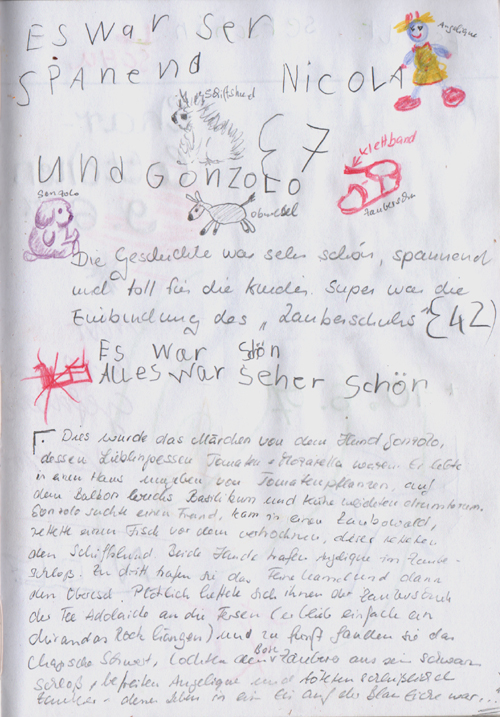 ES WAR SER
SPANEND NICOLA
Angelique
Schiftshund
UND GONZOLO {7
Gonzolo
Obwesel
Klettband
Zauberschu
Die Geschichte war sehr schön, spannend
und toll für die Kinder. Super war die
Einbindung des „Zauberschuhs" {42)
ES WAR SÖN
ALLES WAR SEHER SCHÖN
Dies wurde das Märchen von dem Hund Gonzolo,
dessen Lieblingsessen Tomaten + Mozarella waren. Er lebte
in einem Haus umgeben von Tomatenpflanzen, auf
dem Balkon wuchs Basilikum und Kühe weideten drumherum.
Gonzolo suchte einen Freund, kam in einen Zauberwald,
rettete einen Fisch vor dem vertrocknen, dieser
den Schiftshund. Beide Hunde trafen Angelique im Zauber-
schloß. Zu dritt trafen sie das und dann
den Obwesel. Plötzlich heftete sich ihnen der Zauberschuh
der Fee Adelaide an die Fersen (er blieb einfach an
Hängen) und zu fünft fanden sie das
Schwert, lockten den Bösen Zauberer aus sein schwarz
Schloß, befreiten Angelique und töteten schließlich
Zauberer - dessen Leben in ein Ei auf der Blauen Eiche war...